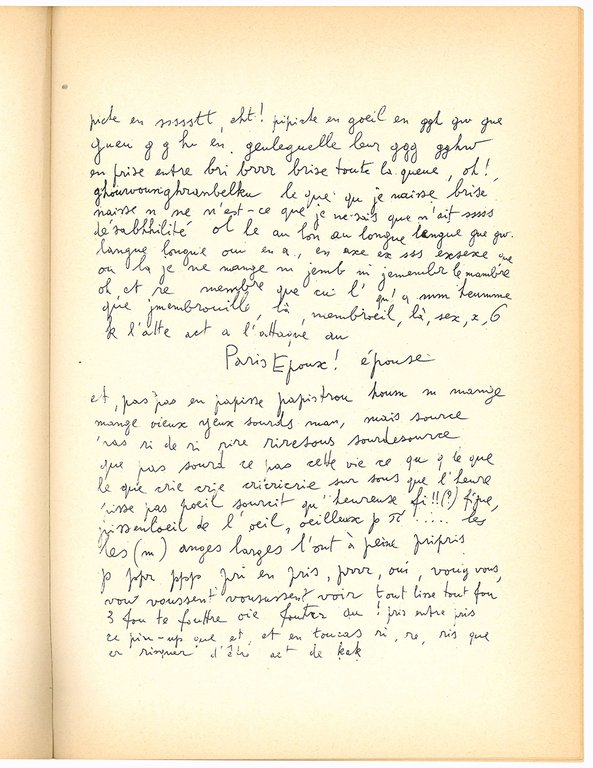 picte en ssssstt, cht! pipicte en goeil en ggh gw que
gueu g g hu en. geuleguelle leur ggg gghw
en prise entre bri brrr brise toute la queue, oh!
ghourvounghranbelku le que qu je naisse brise
naisse n ne n'est-ce que je ne sais que n'ait ssss
désabhhilité ol le au lon au longue langue que
langue longue oui en a, en axe ex sss exsexe que
ou la je ne mange ni jemb ni jemembr le membre
ol et re membre que cui l' qu'a mm hemme
que jmembrouille, là, membroeil, là, sex, x, 6
k l'atte act a l'attaque au
Paris Epoux! épouse
et, pas pas en papisse papistrou houm m mange
mange vieux yeux sourds man, mais source
ras ri de ri rire riresous sourdesource
que pas sourd ce pas cette vie ce qu q le que
le que crie crie cricricrie sur sous que l'heure
isse pas poeil sourcit qu'heureuse fi!!(?) fique,
jissenloeil de l'oeil, oeilleux p π ..... les
les (m) anges larges l'ont à peine pripris
p ppr ppp pri en pris, prrr, oui, voug vous,
vouv voussent vousussent voir tout lisse tout fou
3 fou te fouttre oie foutre au ! pris entre pris
ce pin-up que et, et en toucas ri, re, ris que
er risquer d'être act de kak